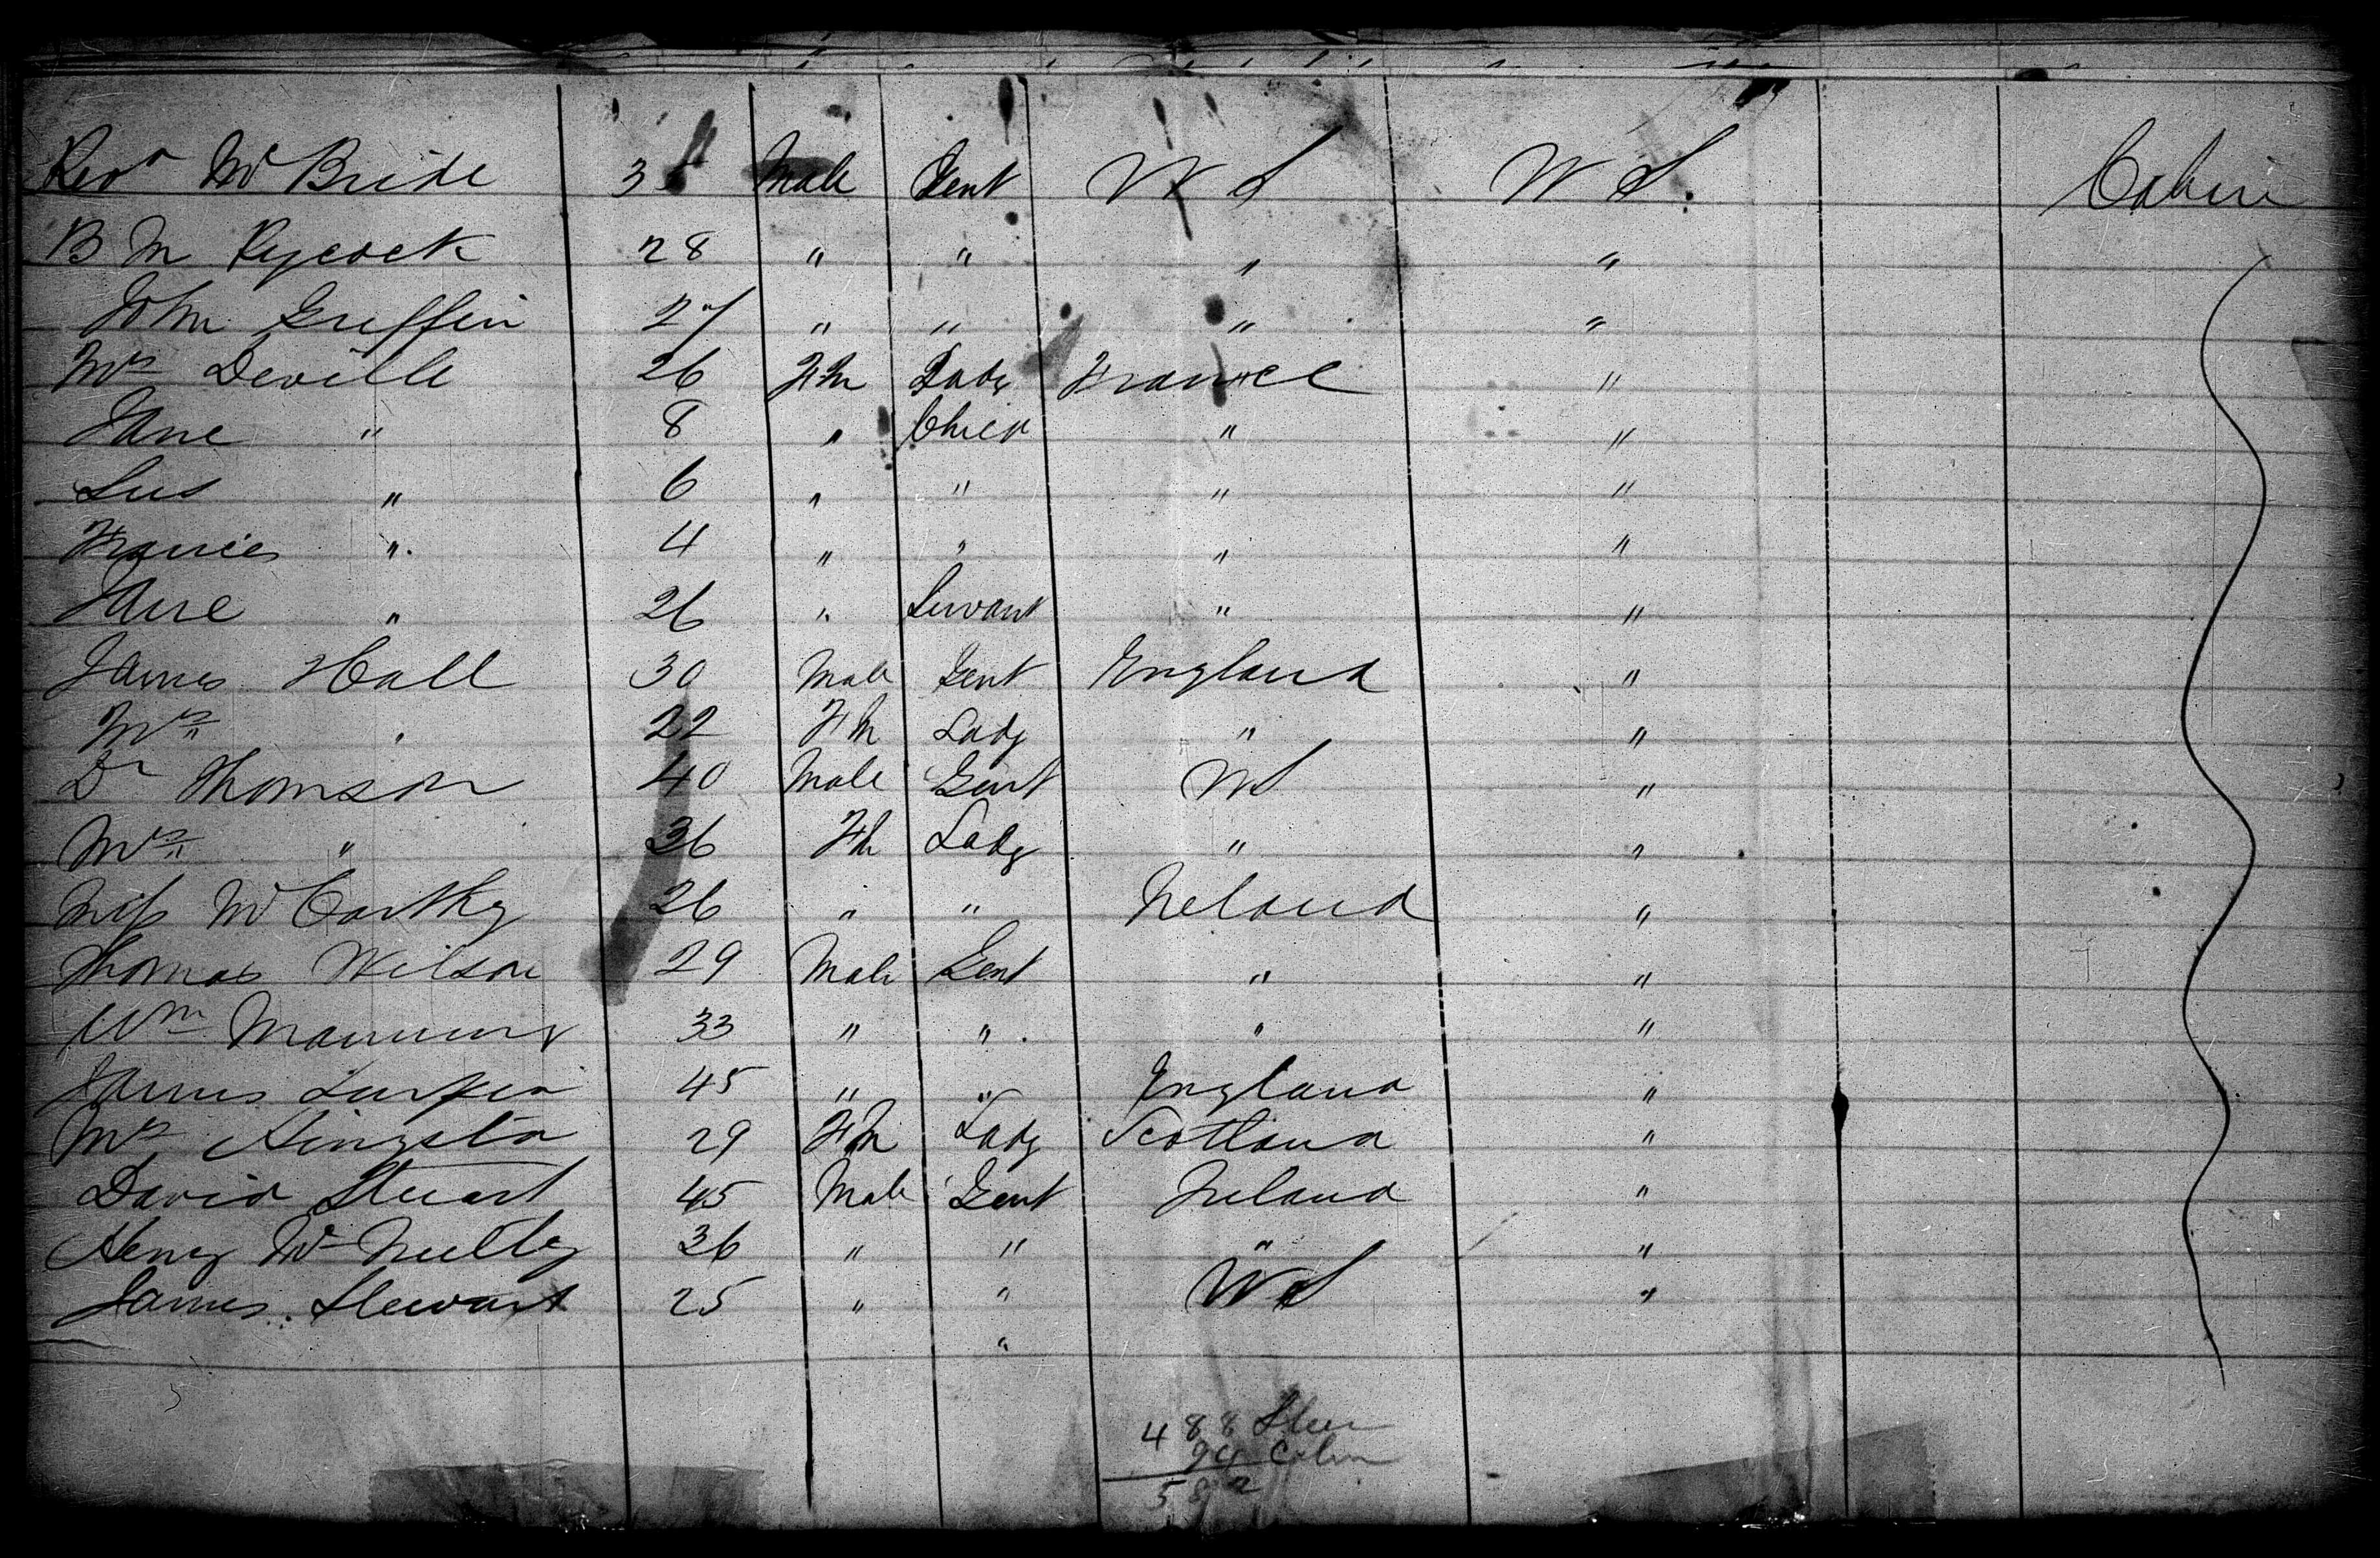 Revd McBride 35 Male Gent U S U S. Cabin
B M Rycock 28 " " " "
John Griffin 27 " " " "
Mrs Deville 26 Fm Lady France "
Jane " 8 " Child " "
Lus " 6 " " " "
Francis " 4 " " " "
Jane " 26 " Servant " "
James Hall 30 Male Gent England "
Mrs " 22 Fm Lady " "
Dr Thomson 40 Male Gent US "
Mrs " 36 Fm Lady " "
Miss McCarthy 26 " " Ireland "
Thomas Wilson 29 Male Gent " "
Wm Manning 33 " " " "
James 45 " " England "
Mrs Kingston 29 Fm Lady Scotland "
David Stuart 45 Male Gent Ireland "
Henry McNulty 36 " " " "
James Stewart 25 " " US "
"
488 Steer
94 Cabin
582